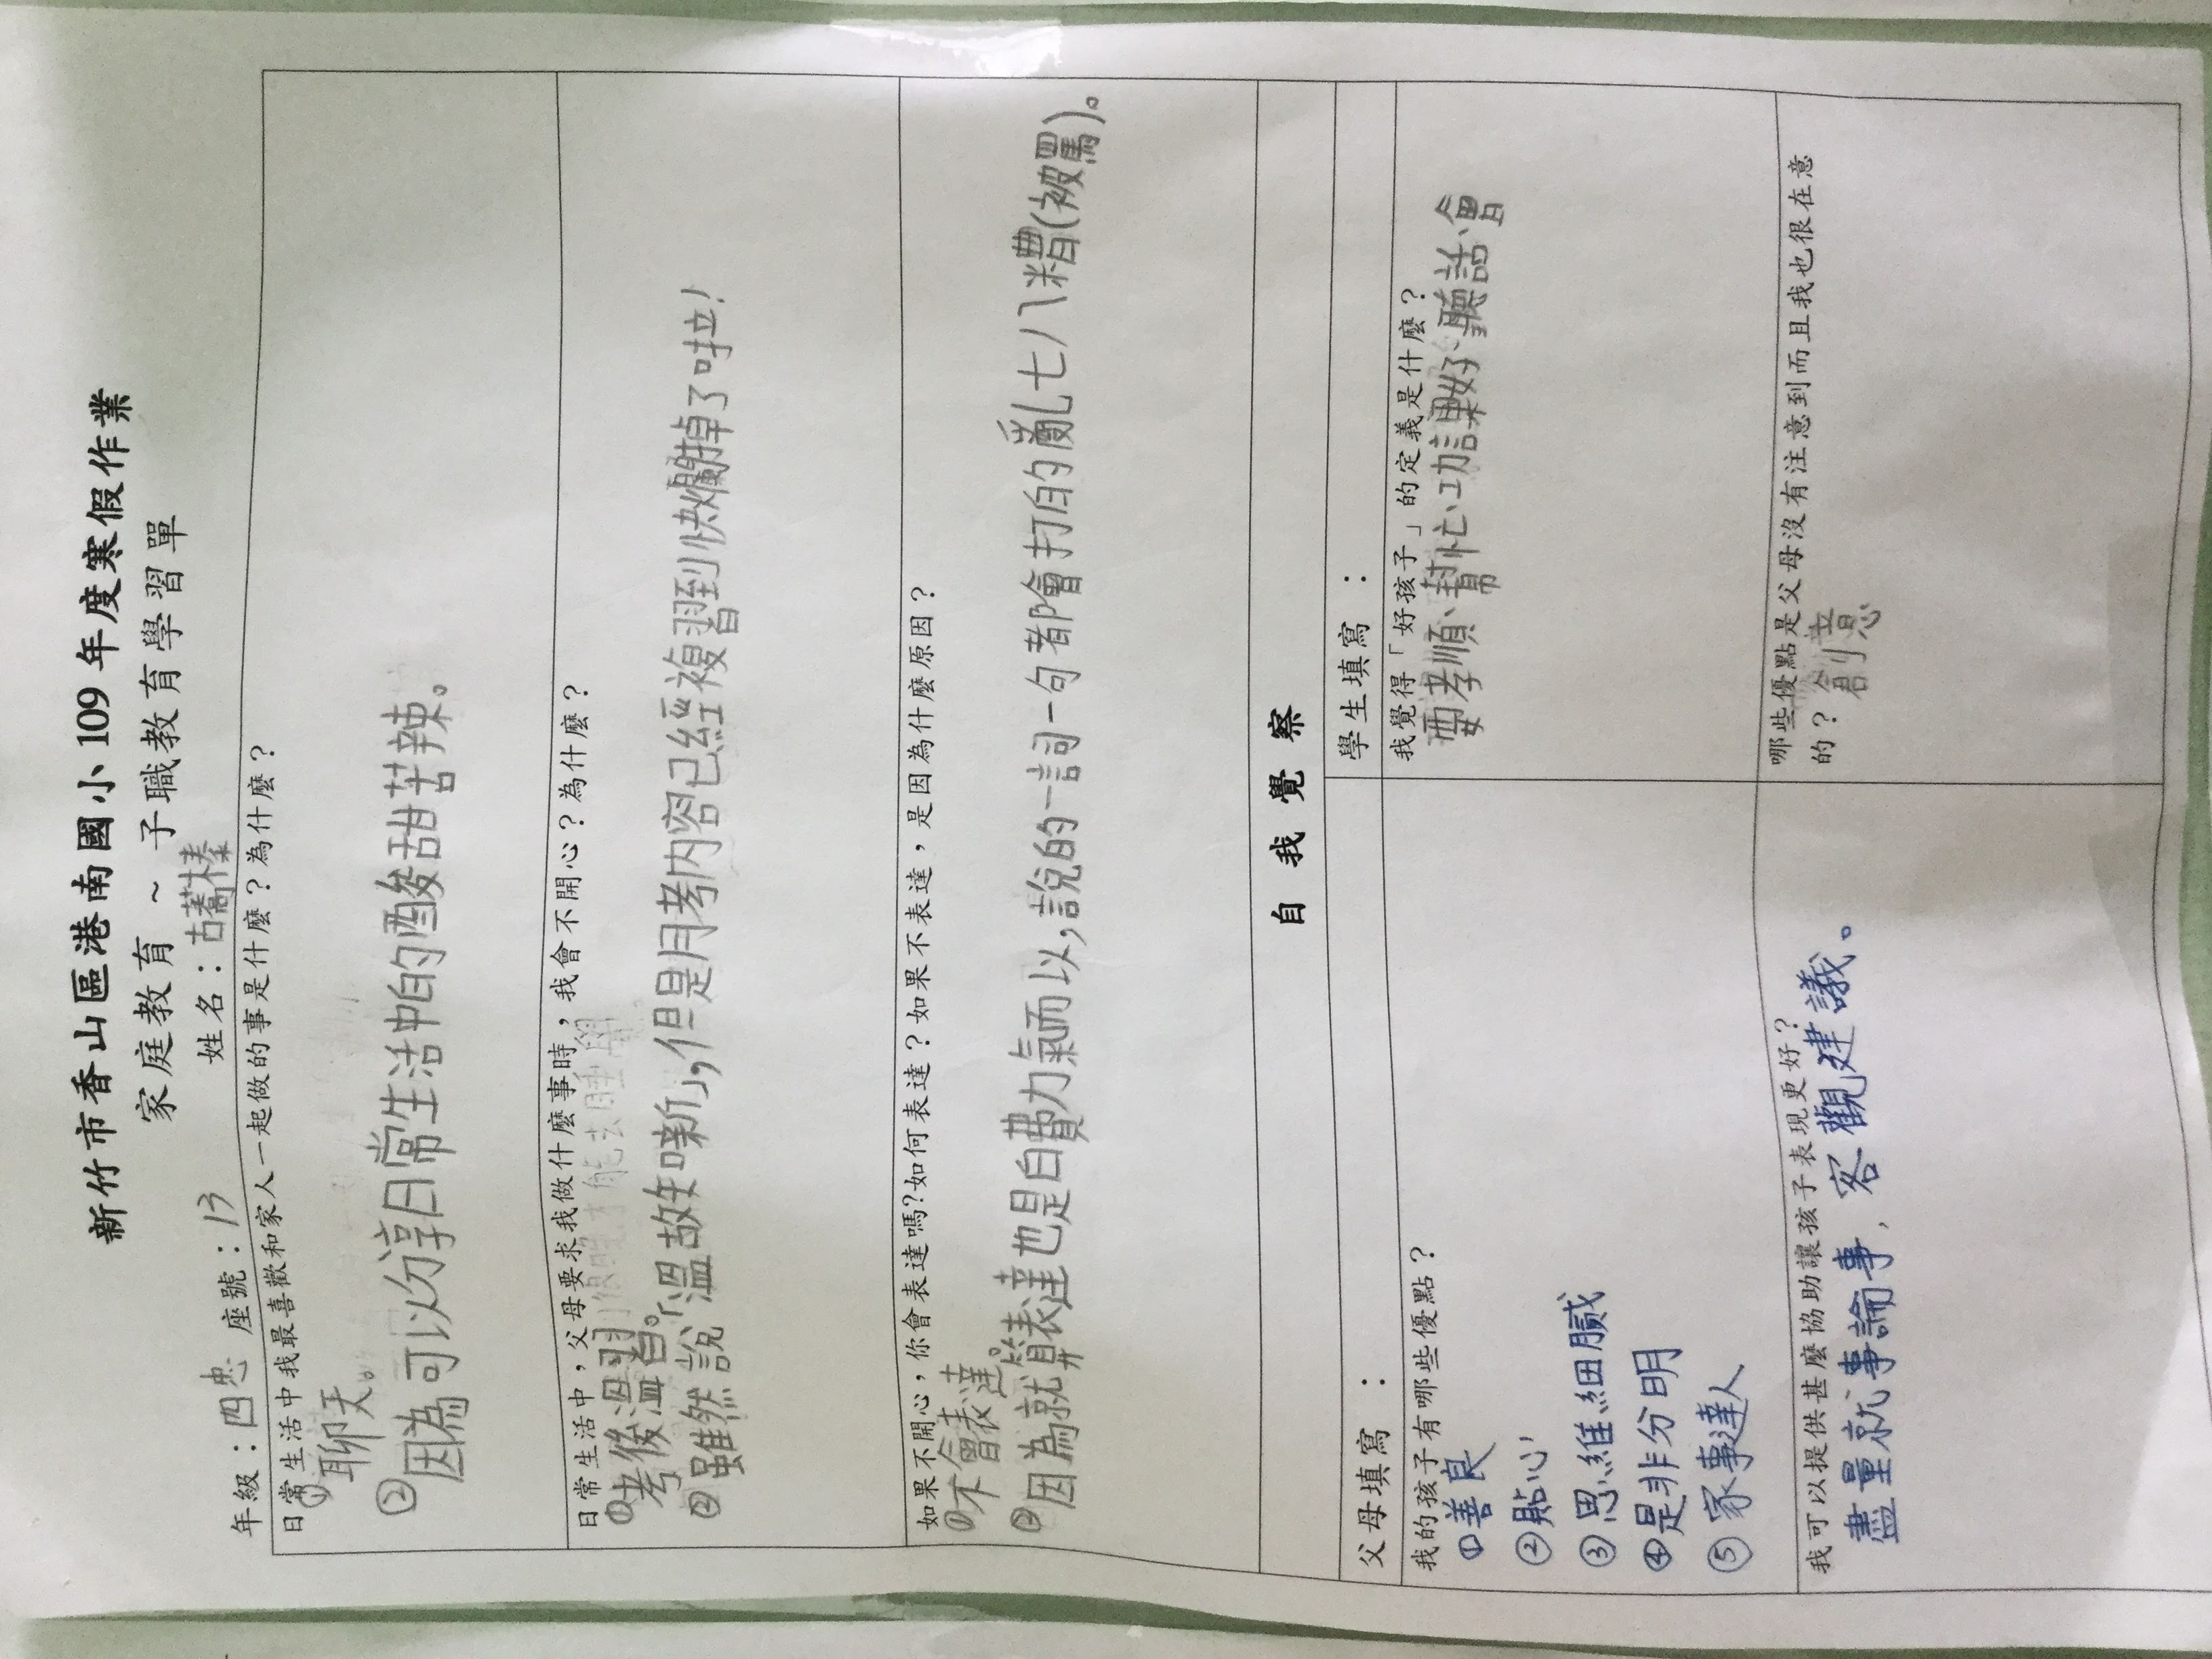 新竹市香山區港南國小 109 年度寒假作業
家庭教育 ~ 子職教育學習單
年級：四忠 座號：13 姓名：古蕎榛
日常生活中我最喜歡和家人一起做的事是什麼？為什麼？
①聊天。
②因為可以分享日常生活中的酸甜苦辣。
日常生活中，父母要求我做什麼事時，我會不開心？為什麼？
①考後溫習。
②雖然說「溫故知新」,但是月考內容已經複習到快爛掉了啦!
如果不開心，你會表達嗎?如何表達？如果不表達，是因為什麼原因？
①不會表達。
②因為就算表達也是白費力氣而以,說的一詞一句都會打自的亂七八糟(被罵)。
自 我 覺 察
父母填寫 ：
學生填寫 ：
我的孩子有哪些優點？
①善良
②貼心
③思維細膩
④是非分明
⑤家事達人
我覺得「好孩子」的定義是什麼？
要孝順、幫忙、功課好、聽話、會
我可以提供甚麼協助讓孩子表現更好？
盡量就事論事，客觀建議。
哪些優點是父母沒有注意到而且我也很在意
的？ 創意